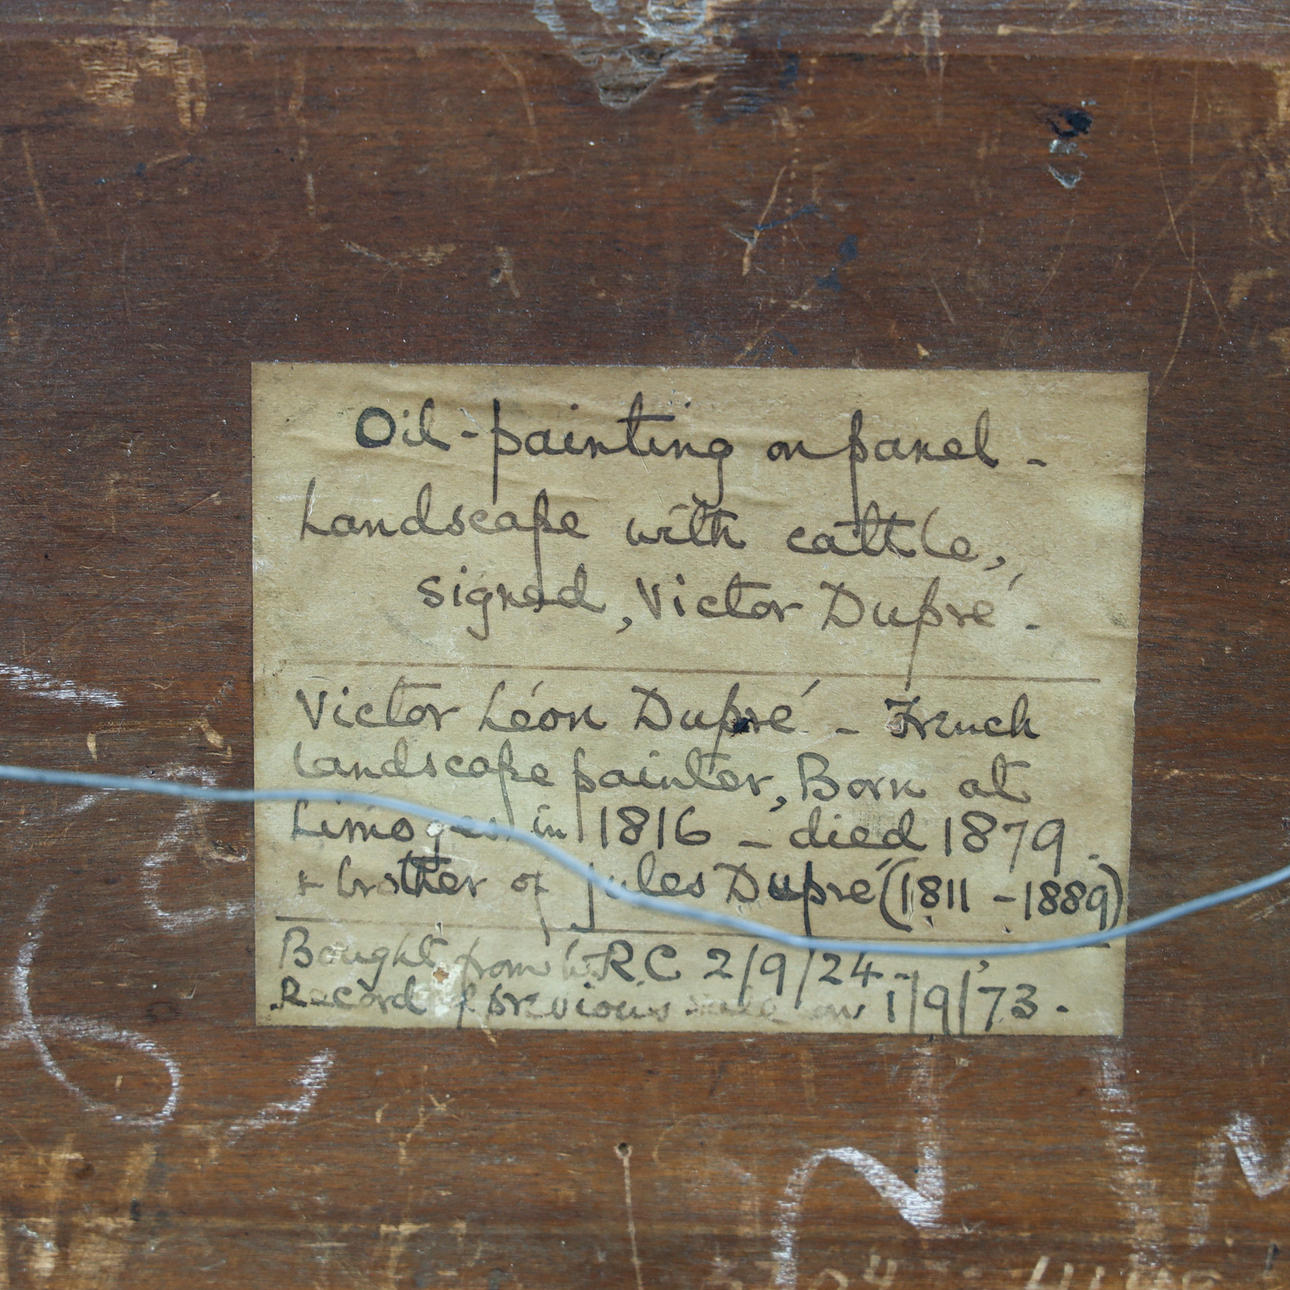 Oil-painting on panel -
Landscape with cattle,
signed, Victor Dupré -
Victor Léon Dupré - French
landscape painter, Born at
Limoges in 1816 - died 1879.
+ brother of Jules Dupré (1811 - 1889)
Bought from W.R.C 2/9/24 -
Record of previous sale on 1/9/'73.